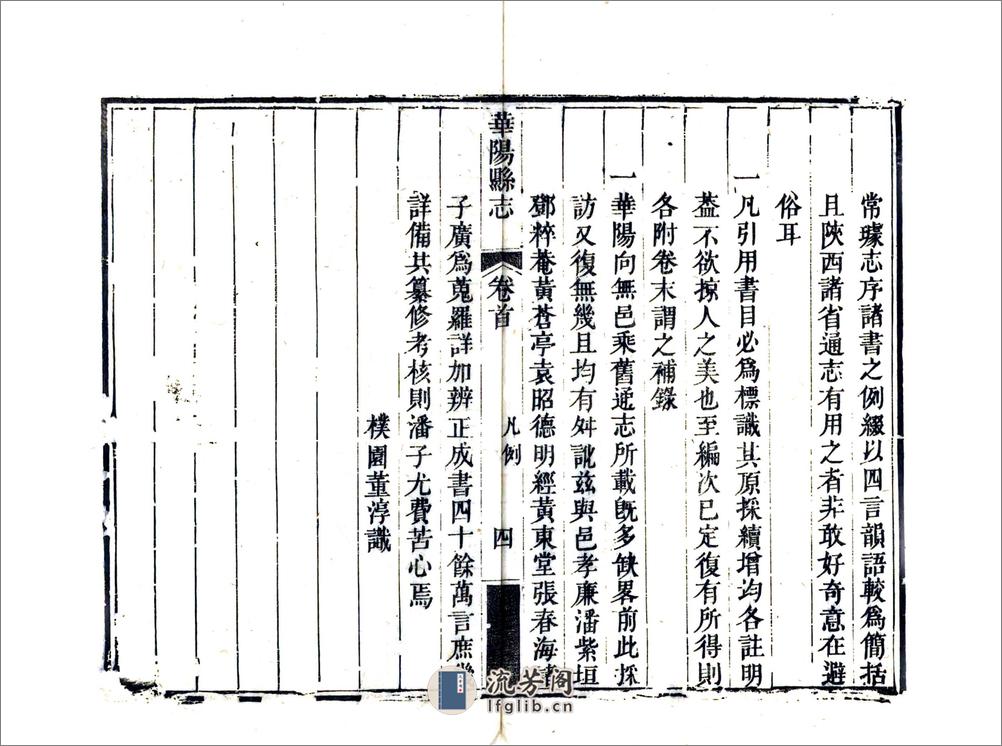 常璩志序諸書之例綴以四言韻語較爲簡括
且陝西諸省通志有用之者非敢好奇意在避
俗耳
一凡引用書目必爲標識其原採續增均各註明
葢不欲掠人之美也至編次已定復有所得則
各附卷末謂之補錄
一華陽向無邑乘舊通志所載旣多缺畧前此採
訪又復無幾且均有舛訛兹與邑孝廉潘紫垣
鄧粹菴黃蒼亭袁昭德明經黃東堂張春海
華陽縣志 卷首 凡例 四
子廣爲蒐羅詳加辨正成書四十餘萬言庶
詳備其纂修考核則潘子尤費苦心焉
樸園董淳識
流芳阁
lfglib.cn